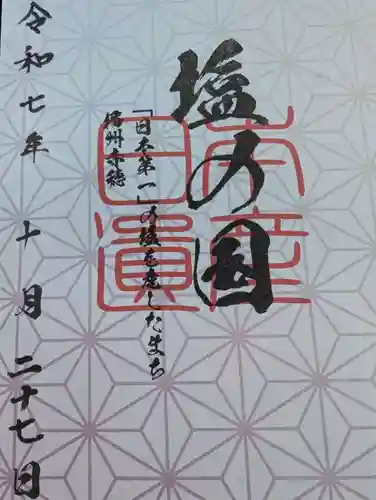 塩の国
「日本第一」の塩を産したまち
播州赤穂
日本
遺産
令和七年 十月 二十七日